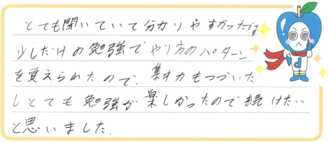 とても聞いていて分かりやすかったです
少しだけの勉強でやり方のパターン
を覚えられたので、集中力もつづいた
しとても勉強が楽しかったので続けたい
と思いました。
d